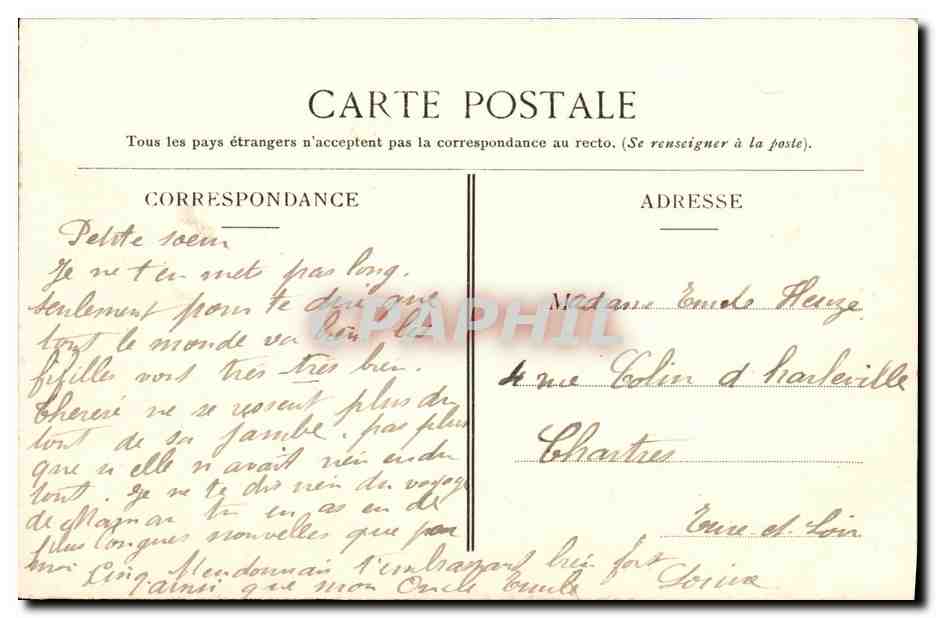 CARTE POSTALE
Tous les pays étrangers n'acceptent pas la correspondance au recto. (Se renseigner à la poste).
CORRESPONDANCE
Petite sœur
Je ne t'en mets pas long.
seulement pour te dire que
tout le monde va bien les
fifilles vont très très bien.
Therese ne se ressent plus du
tout de sa jambe. pas plus
que si elle n avait rien eu du
tout. Je ne te dis rien du voyage
de Maman tu en as eu de
plus longues nouvelles que par
moi Cinq t'embrassent bien fort
ainsi que mon Oncle Emile
ADRESSE
Madame Emile Heuzé
4 rue Colin d harleville
Chartres
Eure-et-Loir
CPAPHIL